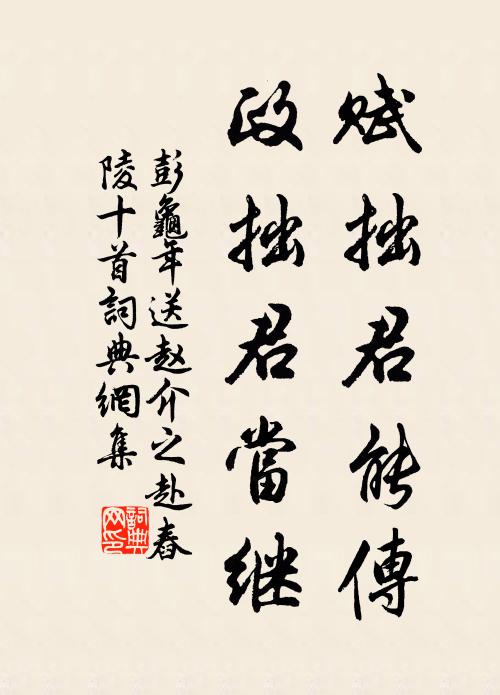 赋拙君能傳
政拙君當继
彭龜年送赵介之赴舂
陵十首詞典網集
詞典
网印